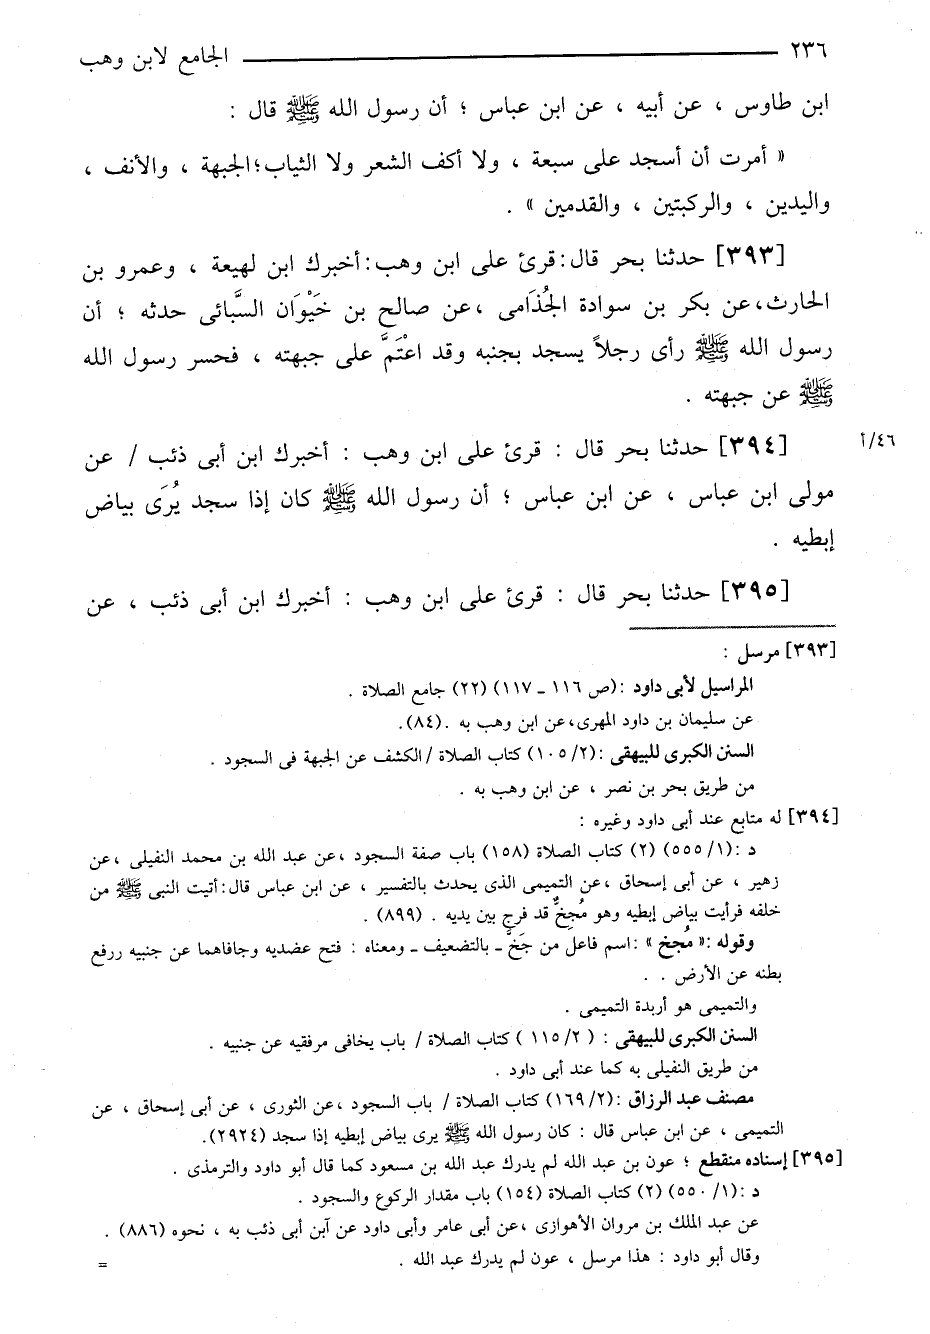 ٢٣٦ الجامع لابن وهب
ابن طاوس ، عن أبيه ، عن ابن عباس ؛ أن رسول الله ﷺ قال :
« أمرت أن أسجد على سبعة ، ولا أكف الشعر ولا الثياب؛الجبهة ، والأنف ،
واليدين ، والركبتين ، والقدمين » .
[٣٩٣] حدثنا بحر قال:قرئ على ابن وهب:أخبرك ابن لهيعة ، وعمرو بن
الحارث،عن بكر بن سوادة الجُذَامى ،عن صالح بن خَيْوَان السَّبائى حدثه ؛ أن
رسول الله ﷺ رأى رجلاً يسجد بجنبه وقد اعْتَمَّ على جبهته ، فحسر رسول الله
ﷺ عن جبهته .
[٣٩٤] حدثنا بحر قال : قرئ على ابن وهب : أخبرك ابن أبى ذئب / عن
٤٦/أ
مولى ابن عباس ، عن ابن عباس ؛ أن رسول الله ﷺ كان إذا سجد يُرَى بياض
إبطيه .
[٣٩٥] حدثنا بحر قال : قرئ على ابن وهب : أخبرك ابن أبى ذئب ، عن
[٣٩٣] مرسل :
المراسيل لأبى داود :(ص ١١٦ ـ ١١٧) (٢٢) جامع الصلاة .
عن سليمان بن داود المهرى،عن ابن وهب به .(٨٤).
السنن الكبرى للبيهقى :(٢/ ١٠٥) كتاب الصلاة / الكشف عن الجبهة فى السجود .
من طريق بحر بن نصر ، عن ابن وهب به .
[٣٩٤] له متابع عند أبى داود وغيره :
د :(١/ ٥٥٥) (٢) كتاب الصلاة (١٥٨) باب صفة السجود ،عن عبد الله بن محمد النفيلى ،عن
زهير ، عن أبى إسحاق ،عن التميمى الذى يحدث بالتفسير ، عن ابن عباس قال:أتيت النبى ﷺ من
خلفه فرأيت بياض إبطيه وهو مُجِخٌّ قد فرج بين يديه . (٨٩٩) .
وقوله :« مُجخ » :اسم فاعل من جَخَّ ـ بالتضعيف ـ ومعناه : فتح عضديه وجافاهما عن جنبيه ررفع
بطنه عن الأرض . .
والتميمى هو أربدة التميمى .
السنن الكبرى للبيهقى : ( ٢/ ١١٥ ) كتاب الصلاة / باب يخافى مرفقيه عن جنبيه .
من طريق النفيلى به كما عند أبى داود .
مصنف عبد الرزاق :(٢/ ١٦٩) كتاب الصلاة / باب السجود ،عن الثورى ، عن أبى إسحاق ، عن
التميمى ، عن ابن عباس قال : كان رسول الله ﷺ يرى بياض إبطيه إذا سجد (٢٩٢٤).
[٣٩٥] إسناده منقطع ؛ عون بن عبد الله لم يدرك عبد الله بن مسعود كما قال أبو داود والترمذى .
د :(١/ ٥٥٠) (٢) كتاب الصلاة (١٥٤) باب مقدار الركوع والسجود .
عن عبد الملك بن مروان الأهوازى ،عن أبى عامر وأبى داود عن آبن أبى ذئب به ، نحوه (٨٨٦) .
وقال أبو داود : هذا مرسل ، عون لم يدرك عبد الله .
=